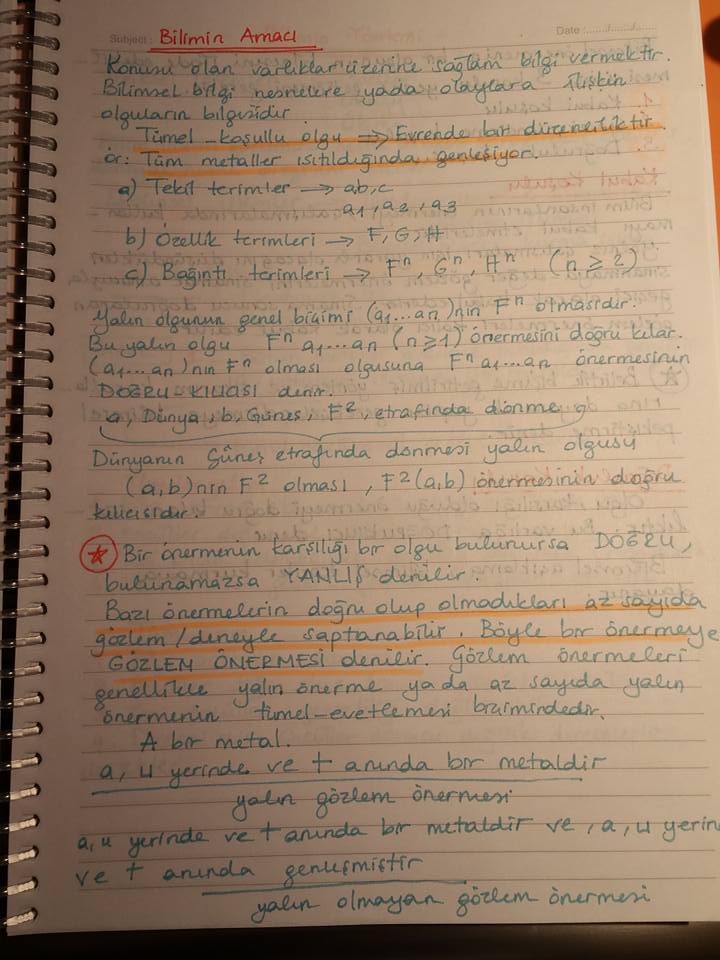 Subject: Bilimin Amacı Date:....../....../......
Konusu olan varlıklar üzerine sağlam bilgi vermektir.
Bilimsel bilgi nesnelere yada olaylara ilişkin
olguların bilgisidir.
Tümel-koşullu olgu → Evrende bir düzenliliktir.
ör: Tüm metaller ısıtıldığında genleşiyor.
a) Tekil terimler → a,b,c
a1, a2, a3
b) Özellik terimleri → F, G, H
c) Bağıntı terimleri → Fⁿ, Gⁿ, Hⁿ (n ≥ 2)
Yalın olgunun genel biçimi (a1...an)'nin Fⁿ olmasıdır.
Bu yalın olgu Fⁿ a1...an (n≥1) önermesini doğru kılar.
(a1...an)'nın Fⁿ olması olgusuna Fⁿ a1...an önermesinin
DOĞRU-KILICISI denir.
a, Dünya, b, Güneş, F², etrafında dönme
Dünyanın Güneş etrafında dönmesi yalın olgusu
(a,b)'nin F² olması, F²(a,b) önermesinin doğru
kılıcısıdır.
Bir önermenin karşılığı bir olgu bulunursa DOĞRU,
bulunamazsa YANLIŞ denilir.
Bazı önermelerin doğru olup olmadıkları az sayıda
gözlem/deneyle saptanabilir. Böyle bir önermeye
GÖZLEM ÖNERMESİ denilir. Gözlem önermeleri
genellikle yalın önerme ya da az sayıda yalın
önermenin tümel-evetlemesi biçimindedir.
A bir metal.
a, u yerinde ve t anında bir metaldir
yalın gözlem önermesi
a, u yerinde ve t anında bir metaldir ve, a, u yerin
ve t anında genleşmiştir
yalın olmayan gözlem önermesi